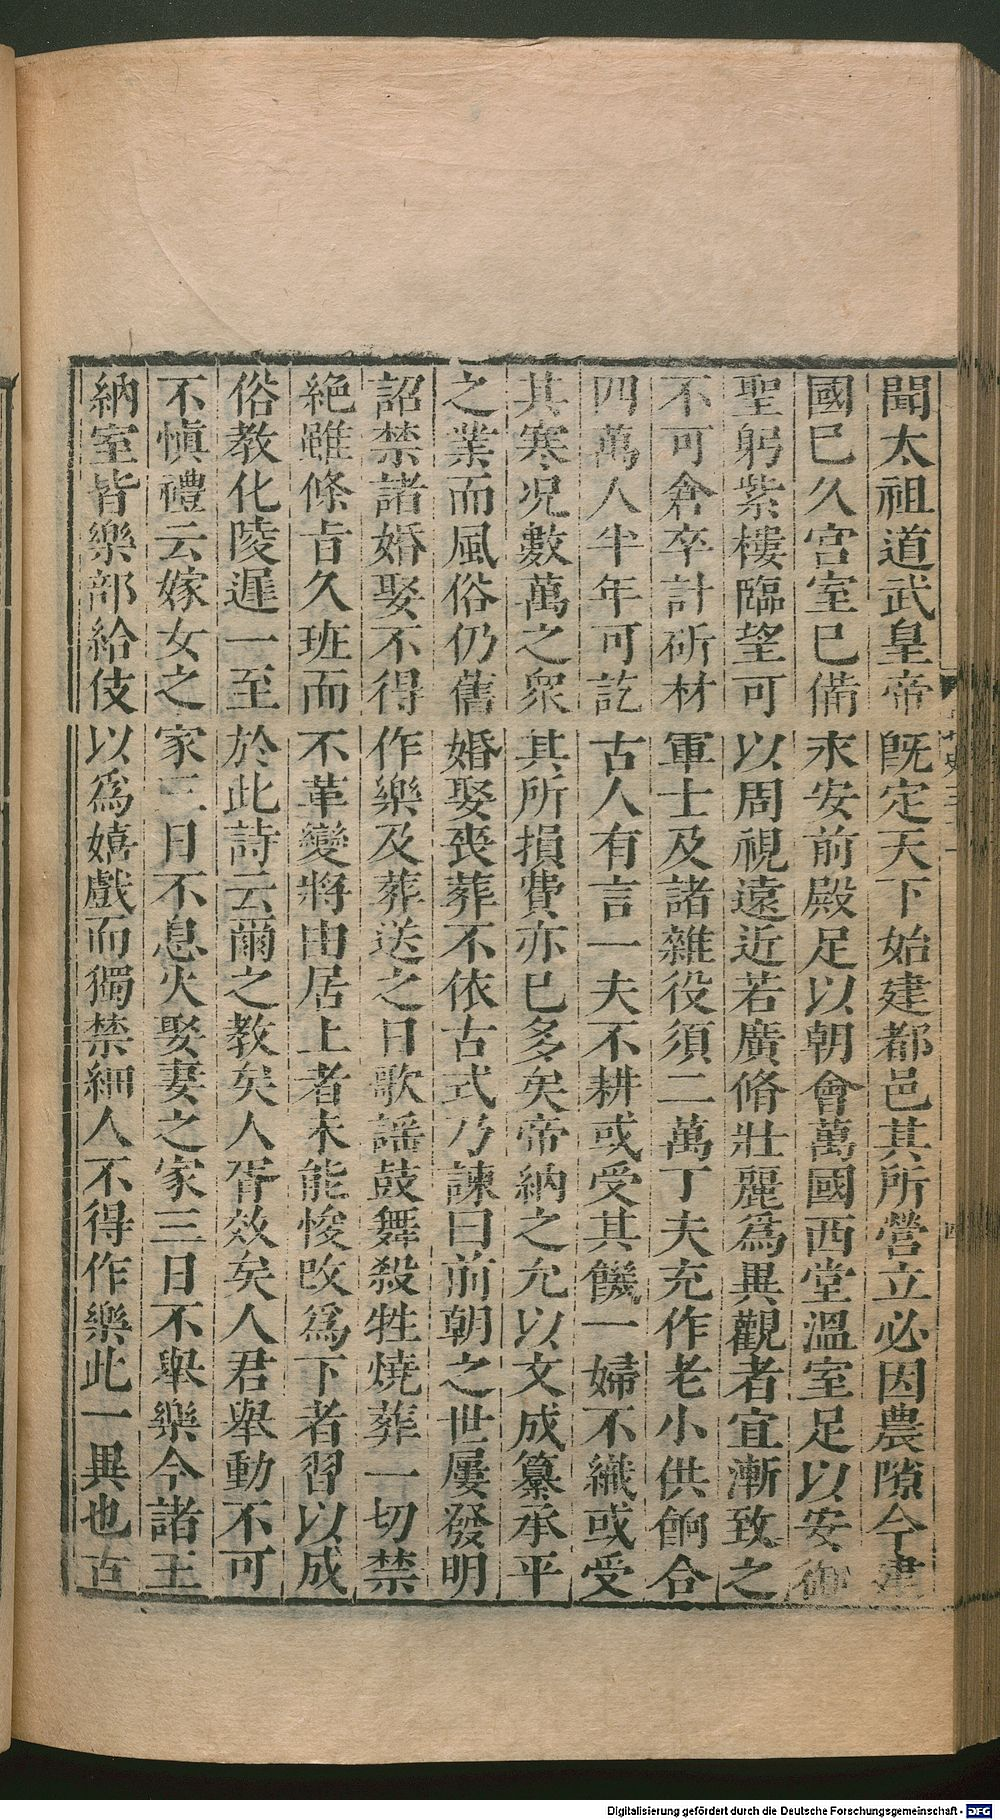 聞太祖道武皇帝旣定天下始建都邑其所營立必因農隙今建
國巳久宮室巳備永安前殿足以朝會萬國西堂溫室足以安御
聖躬紫樓臨望可以周視遠近若廣脩壯麗爲異觀者宜漸致之
不可倉卒計斫材軍士及諸雜役須二萬丁夫充作老小供餉合
四萬人半年可訖古人有言一夫不耕或受其饑一婦不織或受
其寒况數萬之衆其所損費亦巳多矣帝納之允以文成纂承平
之業而風俗仍舊婚娶喪葬不依古式乃諫曰前朝之世屢發明
詔禁諸婚娶不得作樂及葬送之日歌謡鼓舞殺牲燒葬一切禁
絶雖條㫖久班而不革變將由居上者未能悛改爲下者習以成
俗教化陵遲一至於此詩云爾之教矣人胥效矣人君舉動不可
不愼禮云嫁女之家三日不息火娶妻之家三日不舉樂今諸王
納室皆樂部給伎以爲嬉戲而獨禁細人不得作樂此一異也古
四
Digitalisierung gefördert durch die Deutsche Forschungsgemeinschaft - DFG